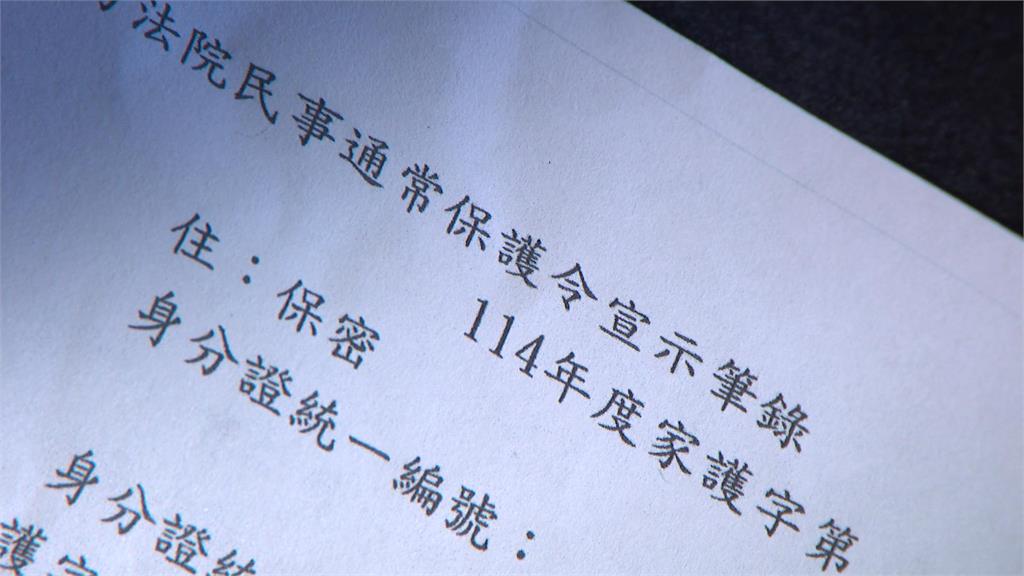 法院民事通常保護令宣示筆錄
114年度家護字第
住：保密
身分證統一編號：
身分證統
護字